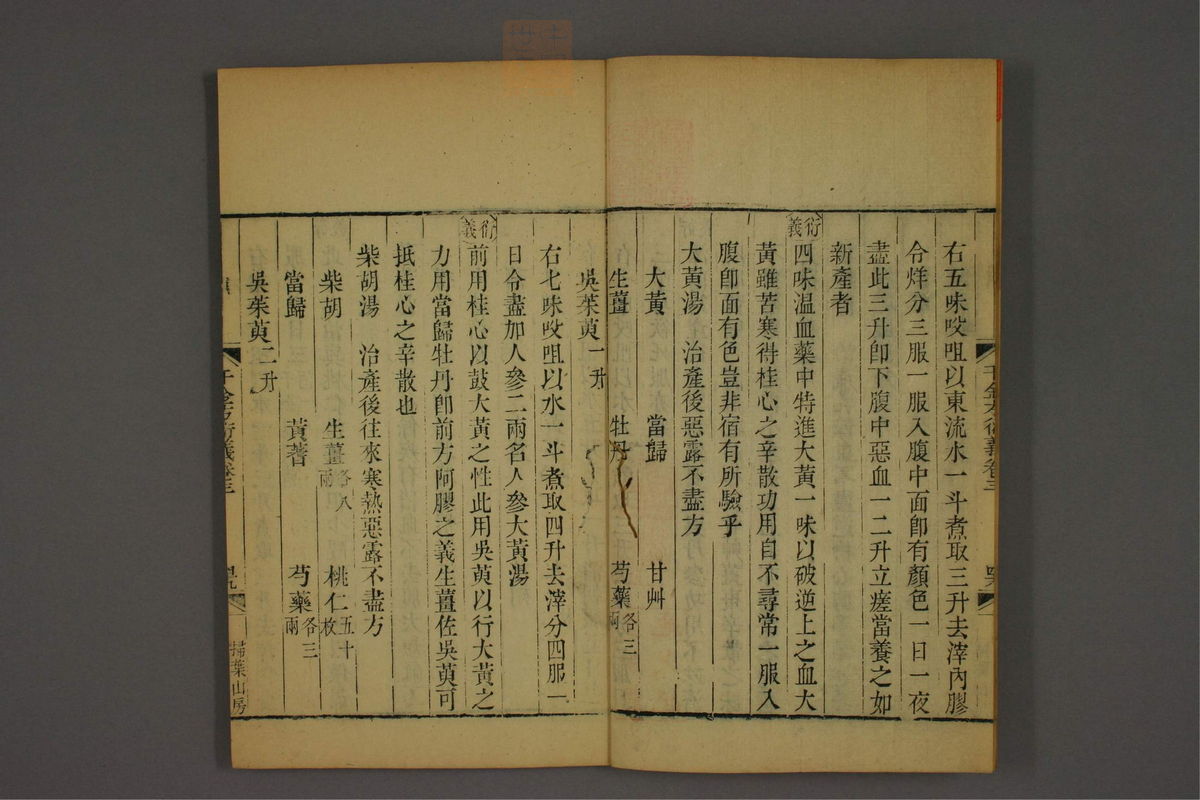 右五味㕮咀以東流水一斗煮取三升去滓內膠
令烊分三服一服入腹中面卽有顏色一日一夜
盡此三升卽下腹中惡血一二升立瘥當養之如
新產者
衍義
四味温血藥中特進大黃一味以破逆上之血大
黃雖苦寒得桂心之辛散功用自不尋常一服入
腹卽面有色豈非宿有所驗乎
大黃湯 治產後惡露不盡方
大黃 當歸 甘艸
生薑 牡丹 芍藥各三兩
吳茱萸一升
右七味㕮咀以水一斗煮取四升去滓分四服一
日令盡加人參二兩名人參大黃湯
衍義
前用桂心以鼓大黃之性此用吳萸以行大黃之
力用當歸牡丹卽前方阿膠之義生薑佐吳萸可
抵桂心之辛散也
柴胡湯 治產後往來寒熱惡露不盡方
柴胡 生薑各八兩 桃仁五十枚
當歸 黃蓍 芍藥各三兩
吳茱萸二升
千金方衍義卷三
掃葉山房